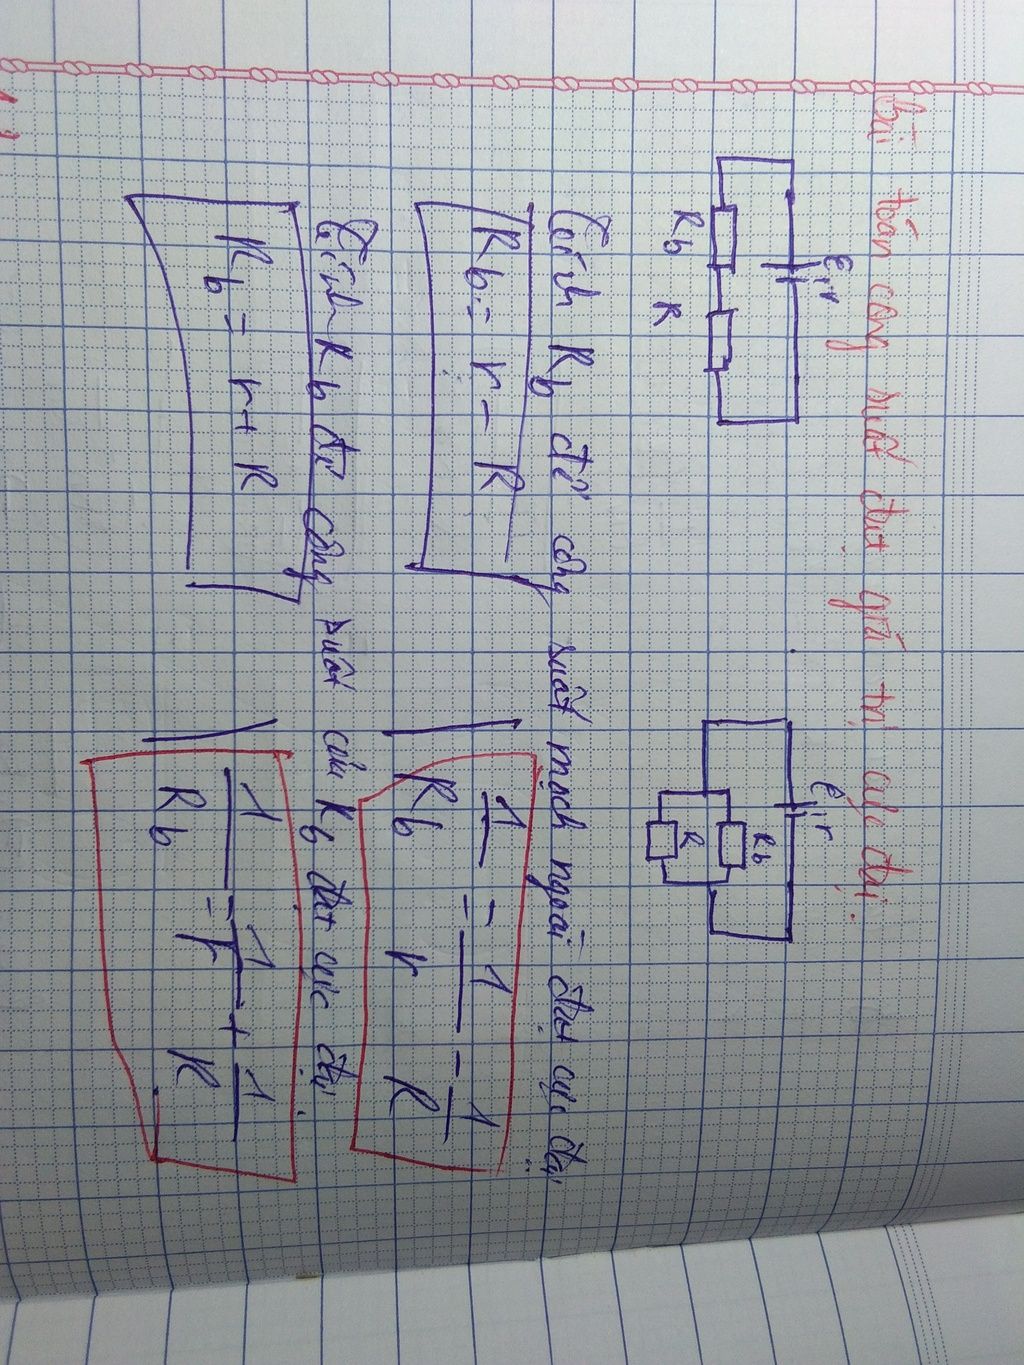 Bài toán công suất đạt giá trị cực đại.
E,r
R_b R
E,r
R_b
R
Tính R_b để công suất mạch ngoài đạt cực đại
R_b = r - R
1/R_b = 1/r - 1/R
Tính R_b để công suất của R_b đạt cực đại.
R_b = r + R
1/R_b = 1/r + 1/R